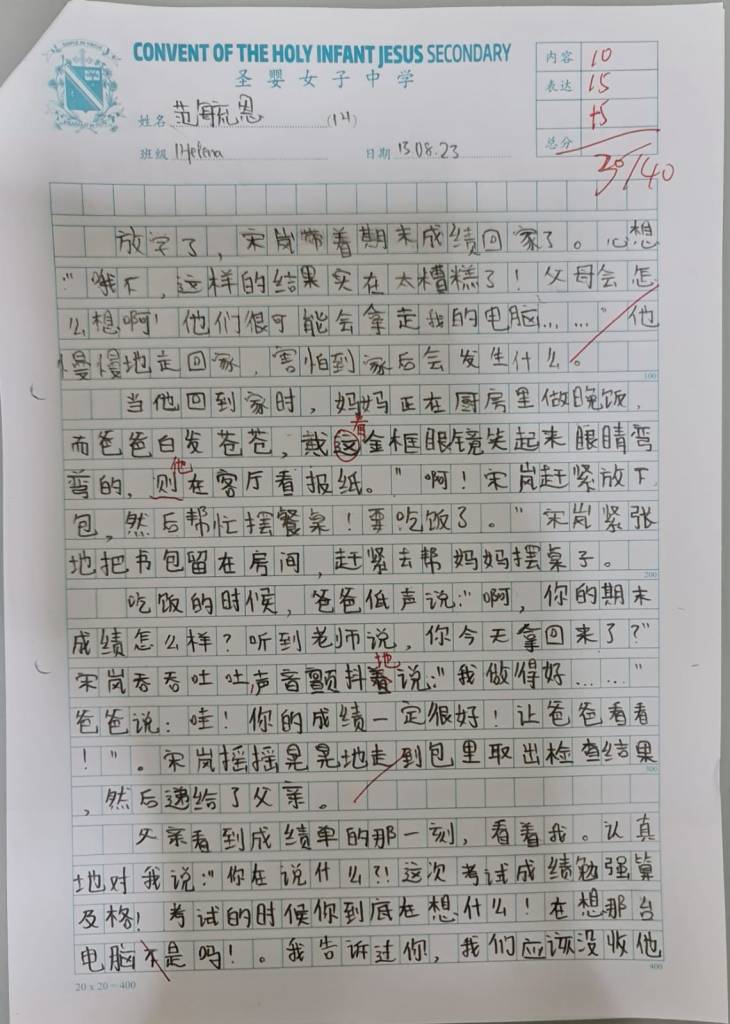 CONVENT OF THE HOLY INFANT JESUS SECONDARY
圣婴女子中学
内容 10
表达 15
+5
总分 30/40
姓名 范毓恩 (14)
班级 1Helena 日期 13.08.23
放学了，宋岚带着期末成绩回家了。心想
："哦不，这样的结果实在太糟糕了！父母会怎
么想啊！他们很可能会拿走我的电脑……"他
慢慢地走回家，害怕到家后会发生什么。
100
当他回到家时，妈妈正在厨房里做晚饭，
着
而爸爸白发苍苍，戴这金框眼镜笑起来眼睛弯
他
弯的，则在客厅看报纸。"啊！宋岚赶紧放下
包，然后帮忙摆餐桌！要吃饭了。"宋岚紧张
地把书包留在房间，赶紧去帮妈妈摆桌子。
200
吃饭的时候，爸爸低声说："啊，你的期末
成绩怎么样？听到老师说，你今天拿回来了？"
地
宋岚吞吞吐吐，声音颤抖着说："我做得好……"
爸爸说：哇！你的成绩一定很好！让爸爸看看
！"。宋岚摇摇晃晃地走到包里取出检查结果
300
，然后递给了父亲。
父亲看到成绩单的那一刻，看着我。认真
地对我说："你在说什么?!这次考试成绩勉强算
及格！考试的时候你到底在想什么！在想那台
电脑不是吗！。我告诉过你，我们应该没收他
20 x 20 = 400
400